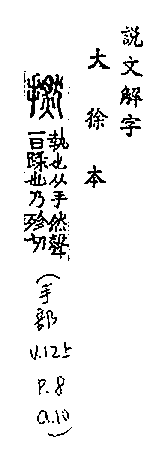 説文解字
大徐本
撚
執也从手然聲
一曰蹂也乃殄切
(手部
V.125
P.8
a.10)